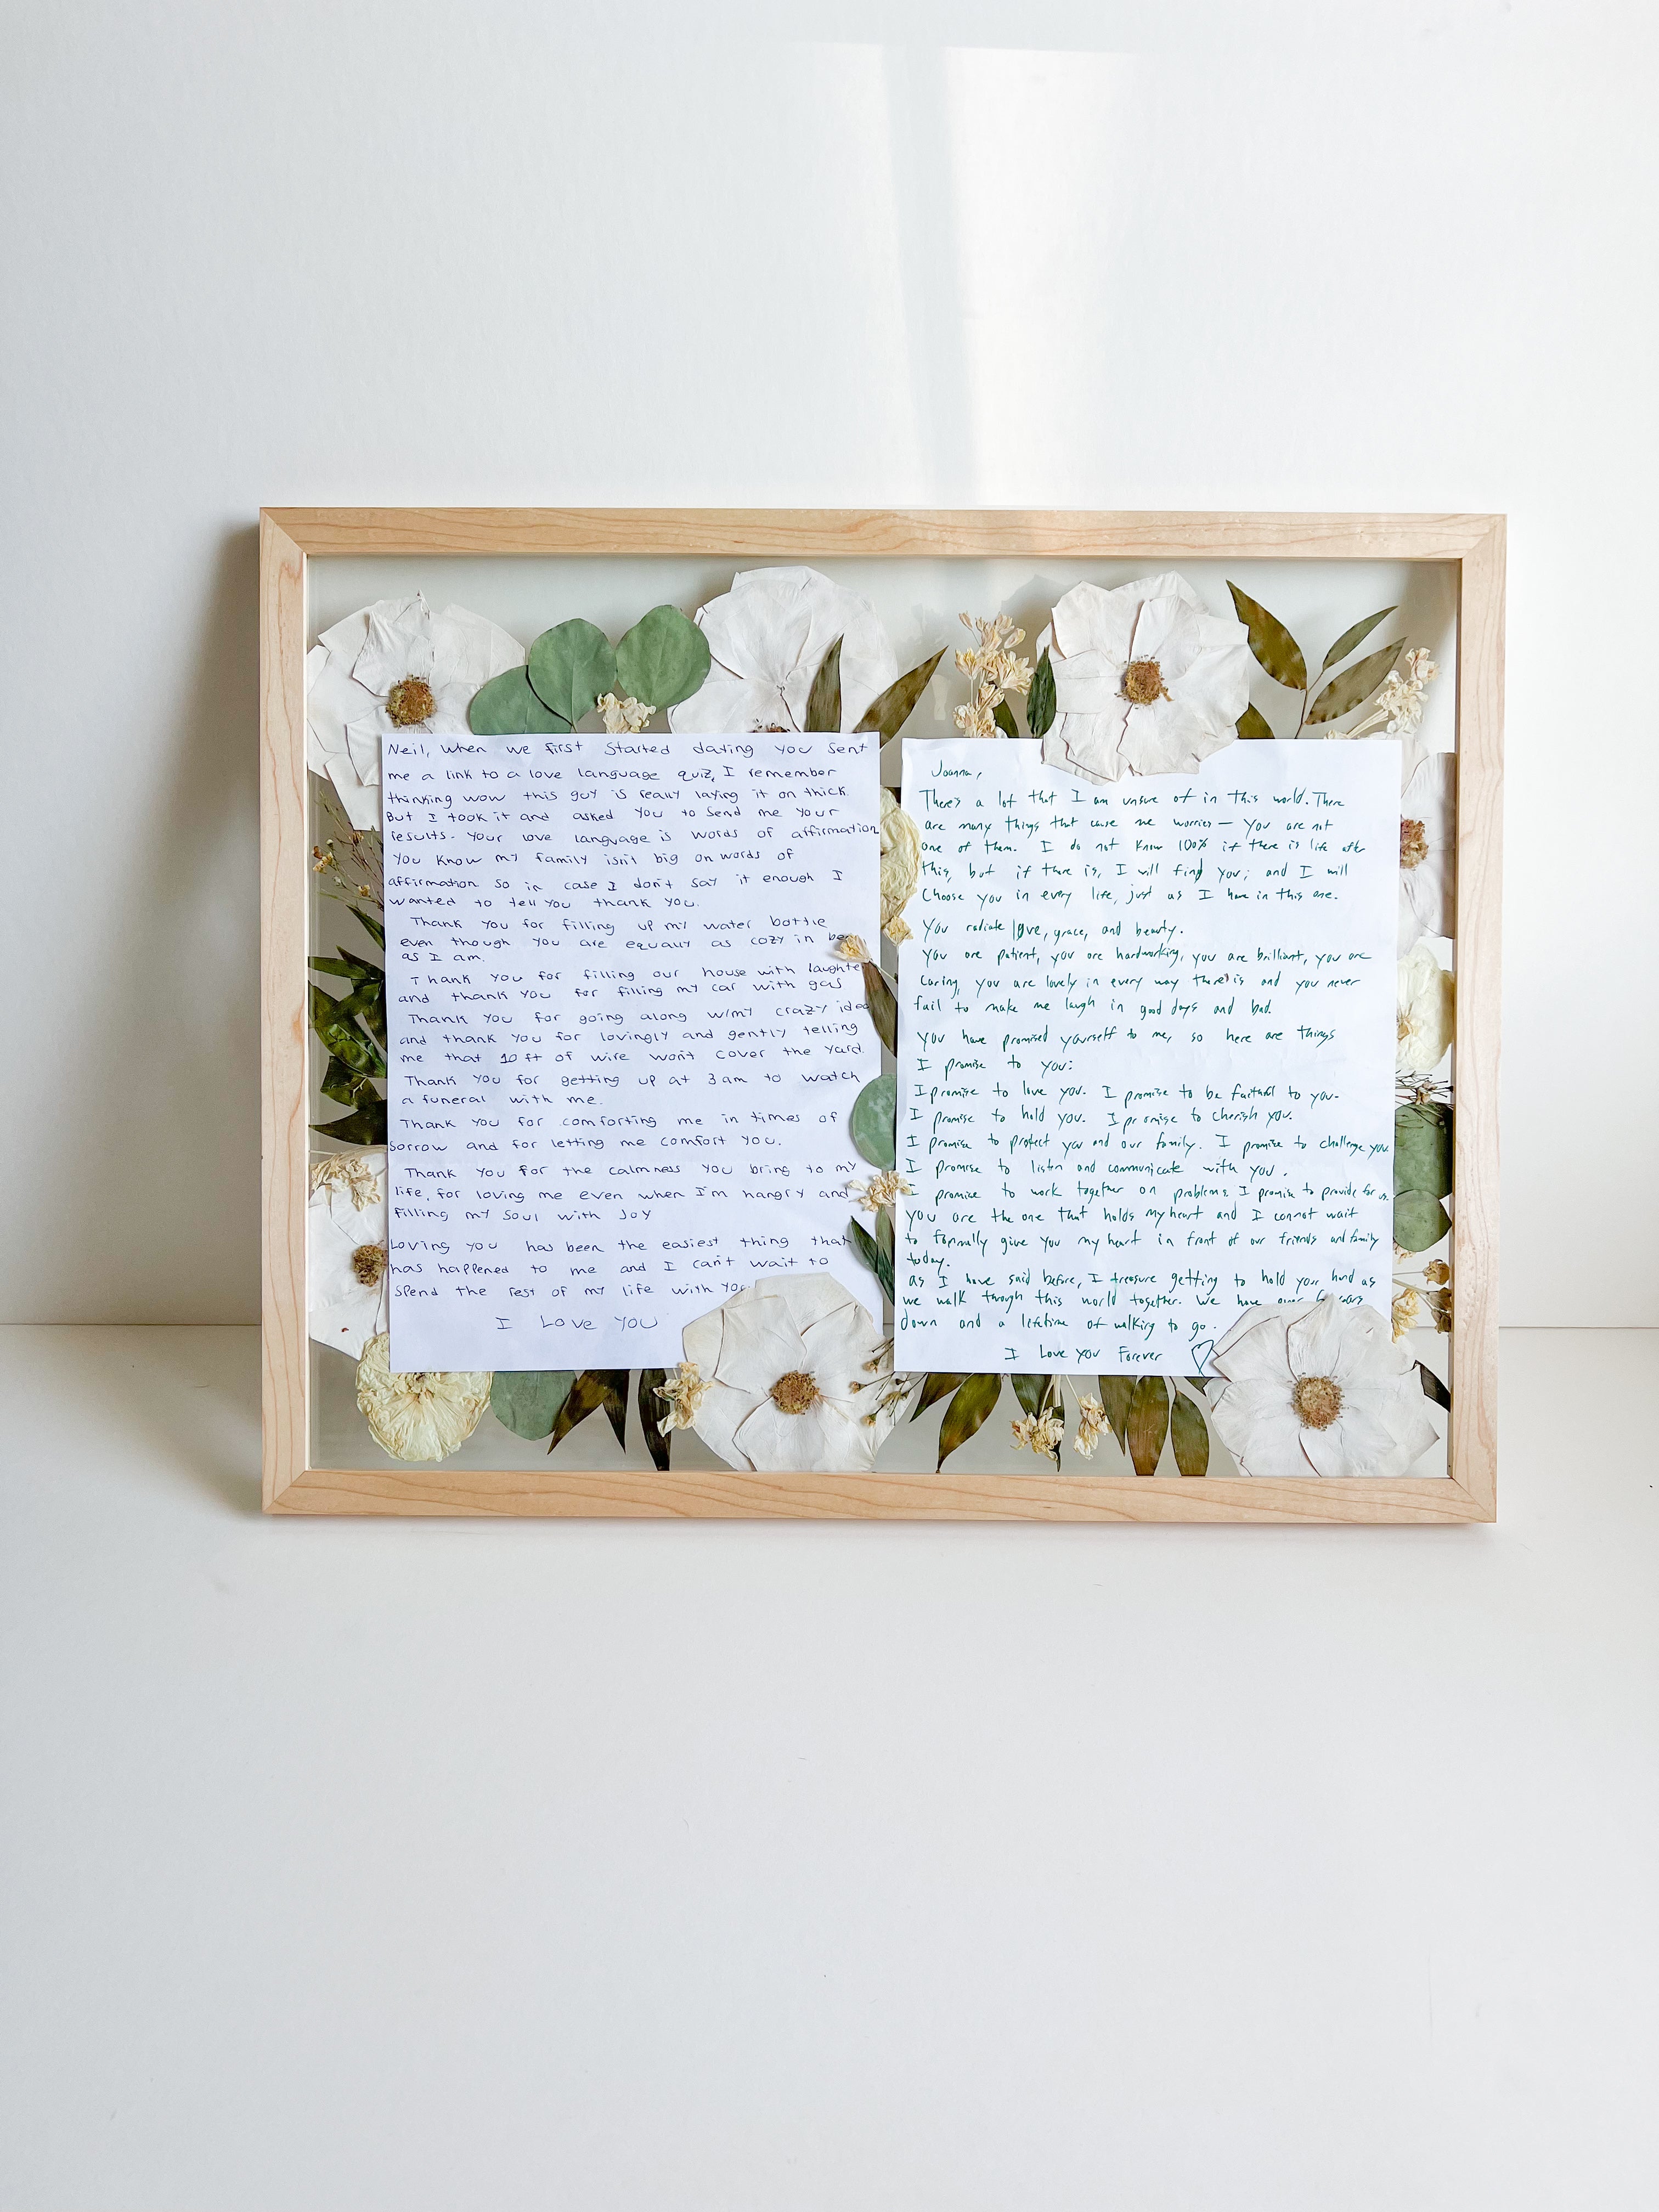 Neil, when we first started dating you sent
me a link to a love language quiz, I remember
thinking wow this guy is really laying it on thick.
But I took it and asked you to send me your
results. Your love language is words of affirmation
You know my family isn't big on words of
affirmation so in case I don't say it enough I
wanted to tell you thank you.
Thank you for filling up my water bottle
even though you are equally as cozy in
as I am.
Thank you for filling our house with laughte
and thank you for filling my car with gas
Thank you for going along w/my crazy idea
and thank you for lovingly and gently telling
me that 10 ft of wire won't cover the yard.
Thank you for getting up at 3 am to watch
a funeral with me.
Thank you for comforting me in times of
sorrow and for letting me comfort you.
Thank you for the calmness you bring to my
life, for loving me even when I'm hangry and
filling my soul with joy
Loving you has been the easiest thing that
has happened to me and I can't wait to
spend the rest of my life with you.
I Love You
Joanna,
There's a lot that I am unsure of in this world. There
are many things that cause me worries — you are not
one of them. I do not know 100% if there is life after
this, but if there is, I will find you; and I will
choose you in every life, just as I have in this one.
You radiate love, grace, and beauty.
You are patient, you are hardworking, you are brilliant, you are
caring, you are lovely in every way there is and you never
fail to make me laugh in good days and bad.
You have promised yourself to me, so here are things
I promise to you:
I promise to love you. I promise to be faithful to you.
I promise to hold you. I promise to cherish you.
I promise to protect you and our family. I promise to challenge you.
I promise to listen and communicate with you.
I promise to work together on problems. I promise to provide for us.
You are the one that holds my heart and I cannot wait
to formally give you my heart in front of our friends and family
today.
As I have said before, I treasure getting to hold your hand as
we walk through this world together. We have over years
down and a lifetime of walking to go.
I Love You Forever